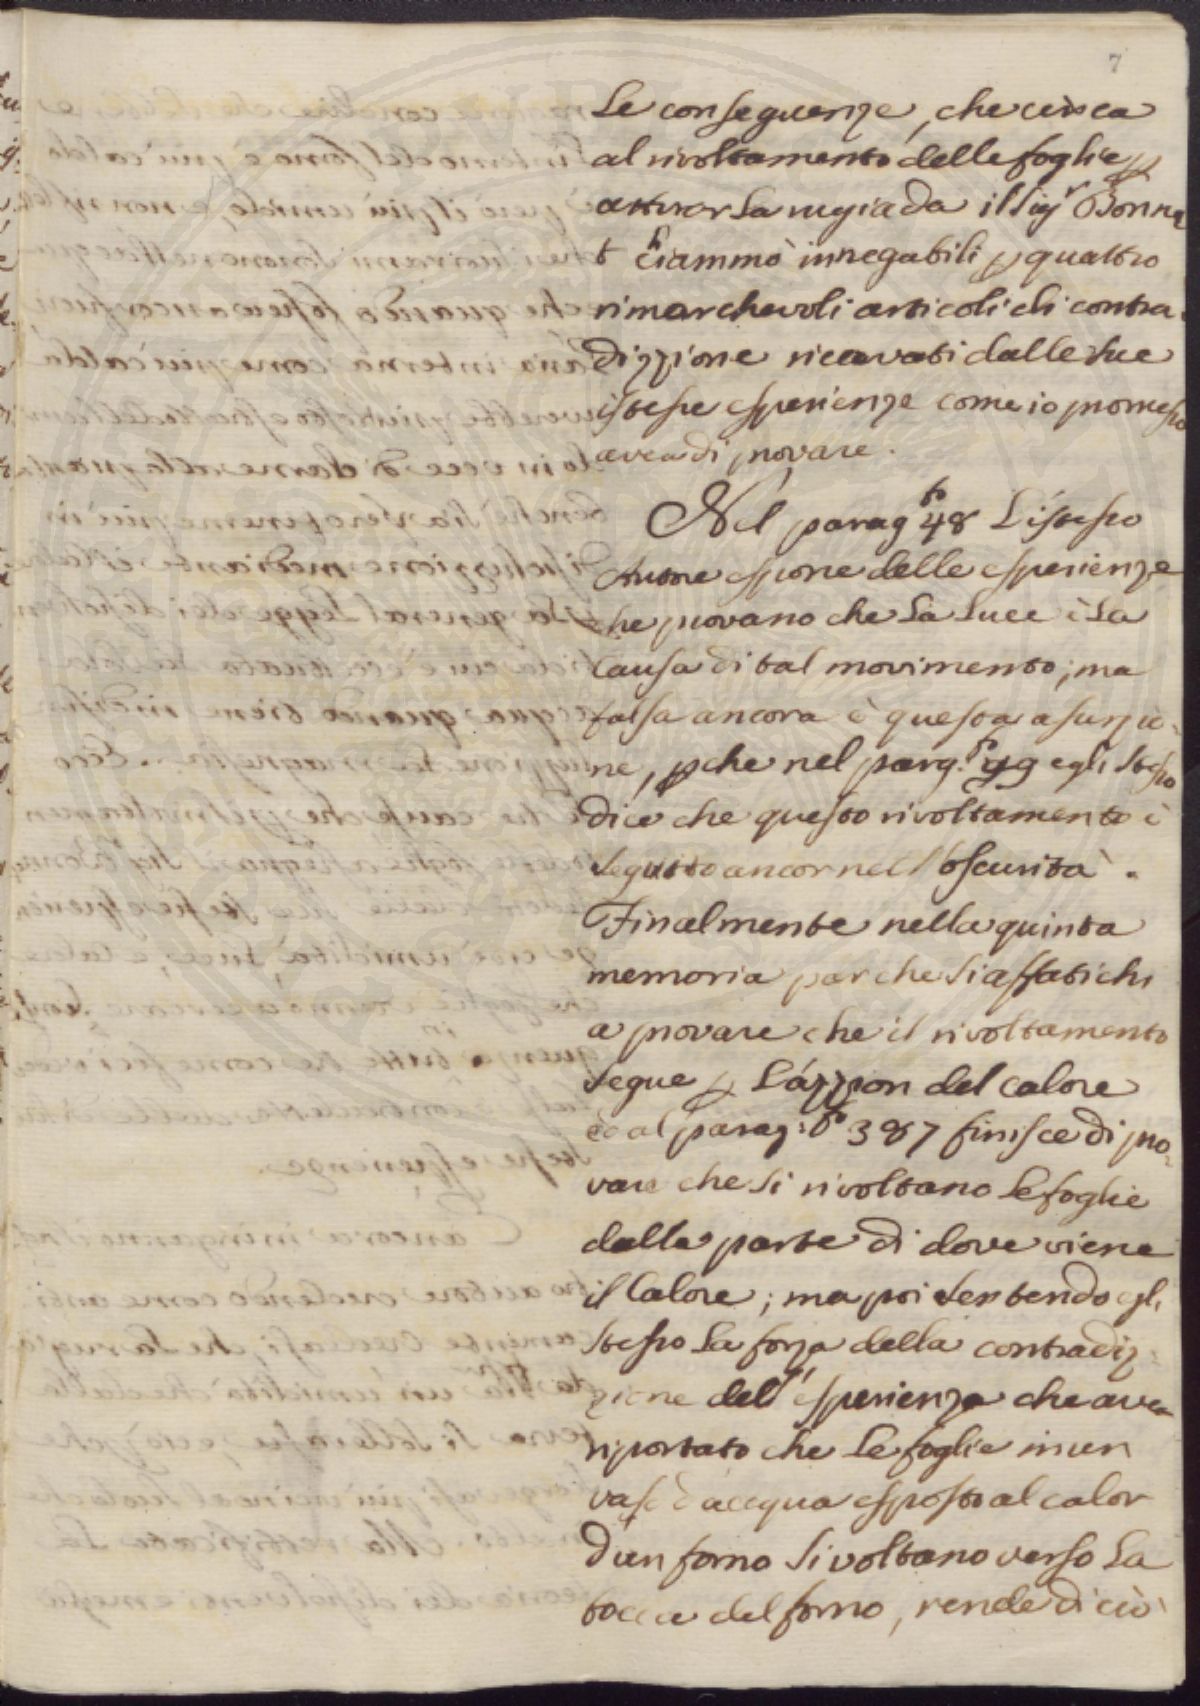 7
Le conseguenze, che circa
al rivoltamento delle foglie p
attirar la rugiada il Sigr Bonne
t chiammò innegabili p quattro
rimarchevoli articoli di contra
dizzione ricavati dalle sue
istesse esperienze come io promesso
avea di provare.
Nel paragfo 48 L'istesso
Autore espone delle esperienze
che provano che la luce è la
Causa di tal movimento; ma
falsa ancora è questa asunzio-
ne, pche nel parg.fo 49 egli stesso
dice che questo rivoltamento è
seguito ancor nell'oscurità.
Finalmente nella quinta
memoria par che si affatichi
a provare che il rivoltamento
segue p l'azzion del calore
ed al parag:fo 387 finisce di pro-
vare che si rivoltano le foglie
dalla parte di dove viene
il Calore; ma poi sentendo egli
stesso la forza della contradiz-
zione dell'esperienza che avea
riportato che le foglie in un
vaso d'acqua esposto al calor
d'un forno si voltano verso la
bocca del forno, rende di ciò